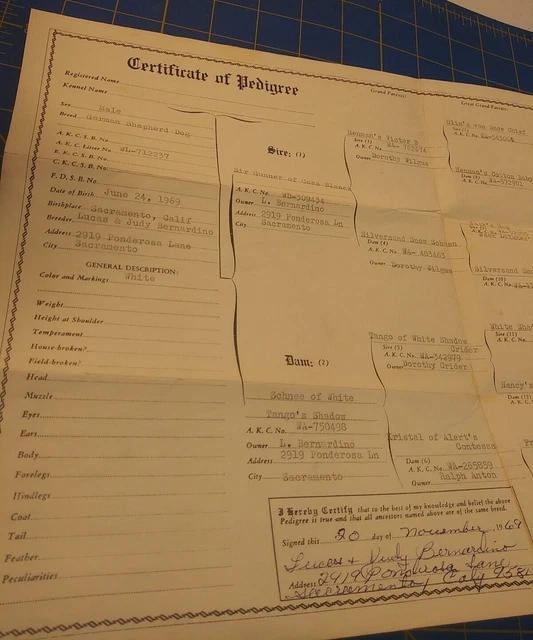 Certificate of Pedigree
Registered Name
Kennel Name
Sex Male
Breed German Shepherd Dog
A. K. C. S. B. No.
A. K. C. Litter No. WL-712237
C. K. C. S. B. No.
F. D. S. B. No.
Date of Birth June 24, 1969
Birthplace Sacramento, Calif
Breeder Lucas & Judy Bernardino
Address 2919 Ponderosa Lane
City Sacramento
GENERAL DESCRIPTION:
Color and Markings White
Weight
Height at Shoulder
Temperament
House-broken?
Field-broken?
Head
Muzzle
Eyes
Ears
Body
Forelegs
Hindlegs
Coat
Tail
Feather
Peculiarities
Sire: (1)
Sir Gunner of Casa Blanca
A. K. C. No. WB-309434
Owner L. Bernardino
Address 2919 Ponderosa Ln
City Sacramento
Dam: (2)
Schnee of White
Tango's Shadow
A. K. C. No. WA-750498
Owner L. Bernardino
Address 2919 Ponderosa Ln
City Sacramento
Grand Parents:
Sire (3)
A. K. C. No.
Owner Dorothy Wilgus
Dam (4)
A. K. C. No. WA-403463
Owner Dorothy Wilgus
Tango of White Shadow
Sire (5) Crider
A. K. C. No. WA-342979
Owner Dorothy Crider
Kristal of Alert's
Contessa
Dam (6)
A. K. C. No. WA-285859
Owner Ralph Anton
Great Grand Parents:
A. K. C. No.
Dam (8)
A. K. C. No. WA-372901
Dam (10)
A. K. C. No.
White Shad
Sire (11)
A. K. C. No.
Nancy's
Dam (12)
A. K. C. No.
I Hereby Certify that to the best of my knowledge and belief the above
Pedigree is true and that all ancestors named above are of the same breed.
Signed this 20 day of November, 1969
Lucas & Judy Bernardino
Address 2919 Ponderosa Lane
Sacramento, Caly